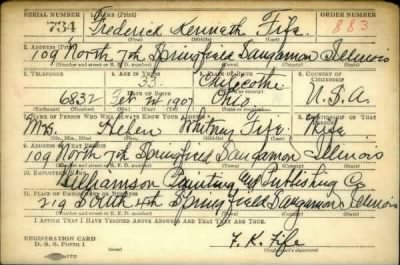 SERIAL NUMBER 1. NAME (Print) ORDER NUMBER
734 Frederick Kenneth Fife 883
2. ADDRESS (Print)
109 North 7th Springfield Sangamon Illinois
(Number and street or R. F. D. number) (Town) (County) (State)
3. TELEPHONE 4. AGE IN YEARS 5. PLACE OF BIRTH 6. COUNTRY OF CITIZENSHIP
Chillicothe
DATE OF BIRTH
6832 Feb 1907 Ohio U.S.A.
(Exchange) (Number) (Mo.) (Day) (Yr.) (State or country)
7. NAME OF PERSON WHO WILL ALWAYS KNOW YOUR ADDRESS 8. RELATIONSHIP OF THAT PERSON
Mrs. Helen Whitney Fife Wife
(Mr., Mrs., Miss) (First) (Middle) (Last)
9. ADDRESS OF THAT PERSON
109 North 7th Springfield Sangamon Illinois
(Number and street or R. F. D. number) (Town) (County) (State)
10. EMPLOYER'S NAME
Williamson Printing and Publishing Co.
11. PLACE OF EMPLOYMENT OR BUSINESS
219 South 4th Springfield Sangamon Illinois
(Number and street or R. F. D. number) (Town) (County) (State)
I AFFIRM THAT I HAVE VERIFIED ABOVE ANSWERS AND THAT THEY ARE TRUE.
REGISTRATION CARD
D. S. S. Form 1 F. K. Fife
(Registrant's signature)